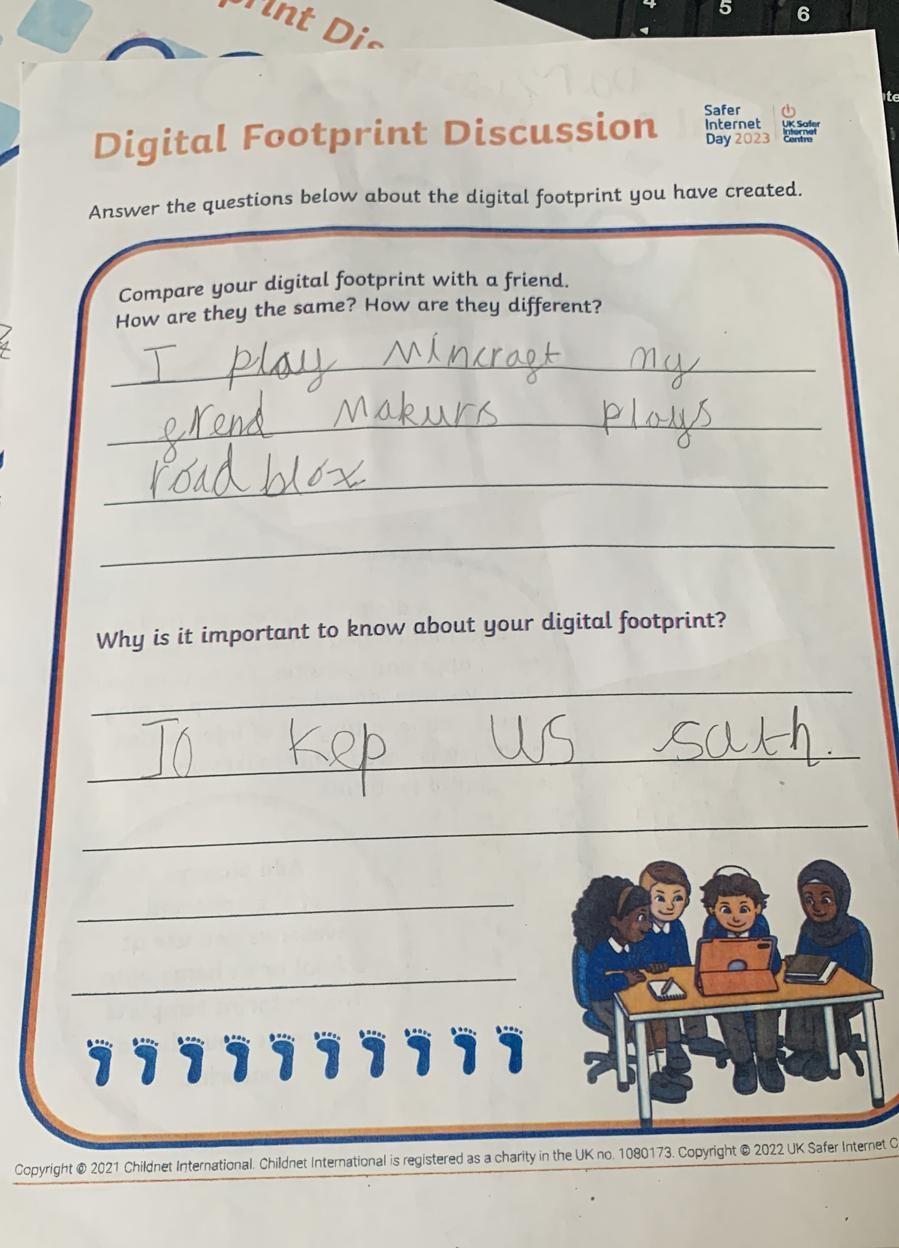 rint Dis
4
5
6
Digital Footprint Discussion
Safer
Internet
Day 2023
UK Safer
Internet
Centre
Answer the questions below about the digital footprint you have created.
Compare your digital footprint with a friend.
How are they the same? How are they different?
I play Mincraft my
frend Makurs plays
road blox
Why is it important to know about your digital footprint?
To kep us sath.
Copyright © 2021 Childnet International. Childnet International is registered as a charity in the UK no. 1080173. Copyright © 2022 UK Safer Internet C